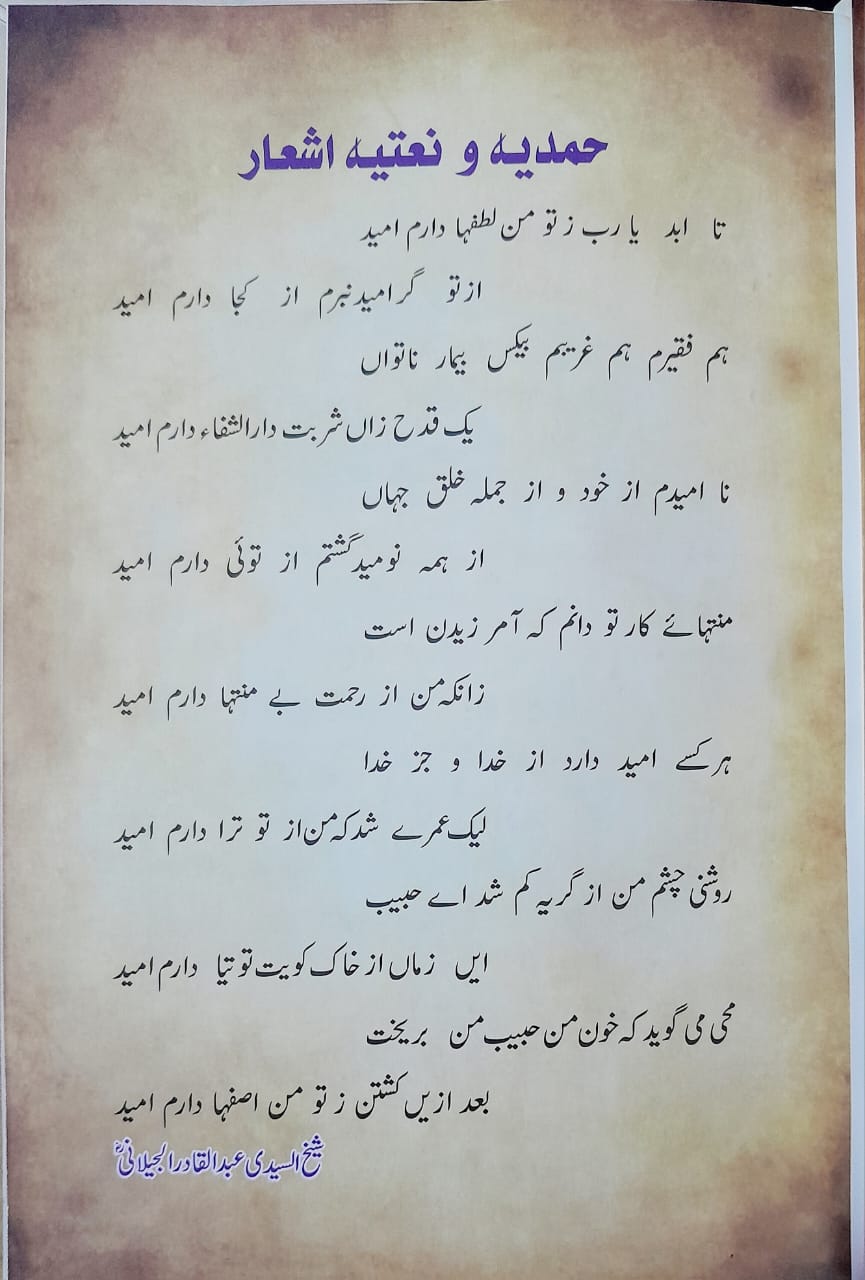 حمدیہ و نعتیہ اشعار
تا ابد یا رب ز تو من لطفہا دارم امید
از تو گر امید نبرم از کجا دارم امید
ہم فقیرم ہم غریبم بیکس بیمار ناتواں
یک قدح زاں شربت دارالشفاء دارم امید
نا امیدم از خود و از جملہ خلق جہاں
از ہمہ نومید گشتم از توئی دارم امید
منتہائے کار تو دانم کہ آمر زیدن است
زانکہ من از رحمت بے منتہا دارم امید
ہر کسے امید دارد از خدا و جز خدا
لیک عمرے شد کہ من از تو ترا دارم امید
روشنی چشم من از گریہ کم شد اے حبیب
ایں زماں از خاک کویت تو تیا دارم امید
محی می گوید کہ خون من حبیب من بریخت
بعد ازیں کشتن ز تو من اصفہا دارم امید
شیخ السیدی عبدالقادر الجیلانیؒ